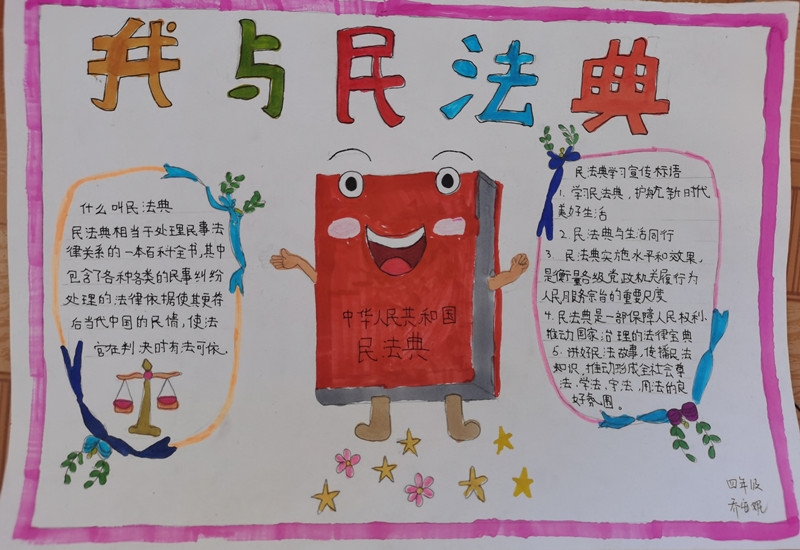 我与民法典
什么叫民法典
民法典相当于处理民事法
律关系的一本百科全书,其中
包含了各种各类的民事纠纷
处理的法律依据使其更符
后当代中国的民情,使法
官在判决时有法可依.
中华人民共和国
民法典
民法典学习宣传标语
1. 学习民法典,护航新时代
美好生活
2. 民法典与生活同行
3. 民法典实施水平和效果,
是衡量各级党政机关履行为
人民服务宗旨的重要尺度
4. 民法典是一部保障人民权利.
推动国家治理的法律宝典
5. 讲好民法故事,传播民法
知识.推动形成全社会尊
法,学法,守法,用法的良
好氛围。
四年级
乔